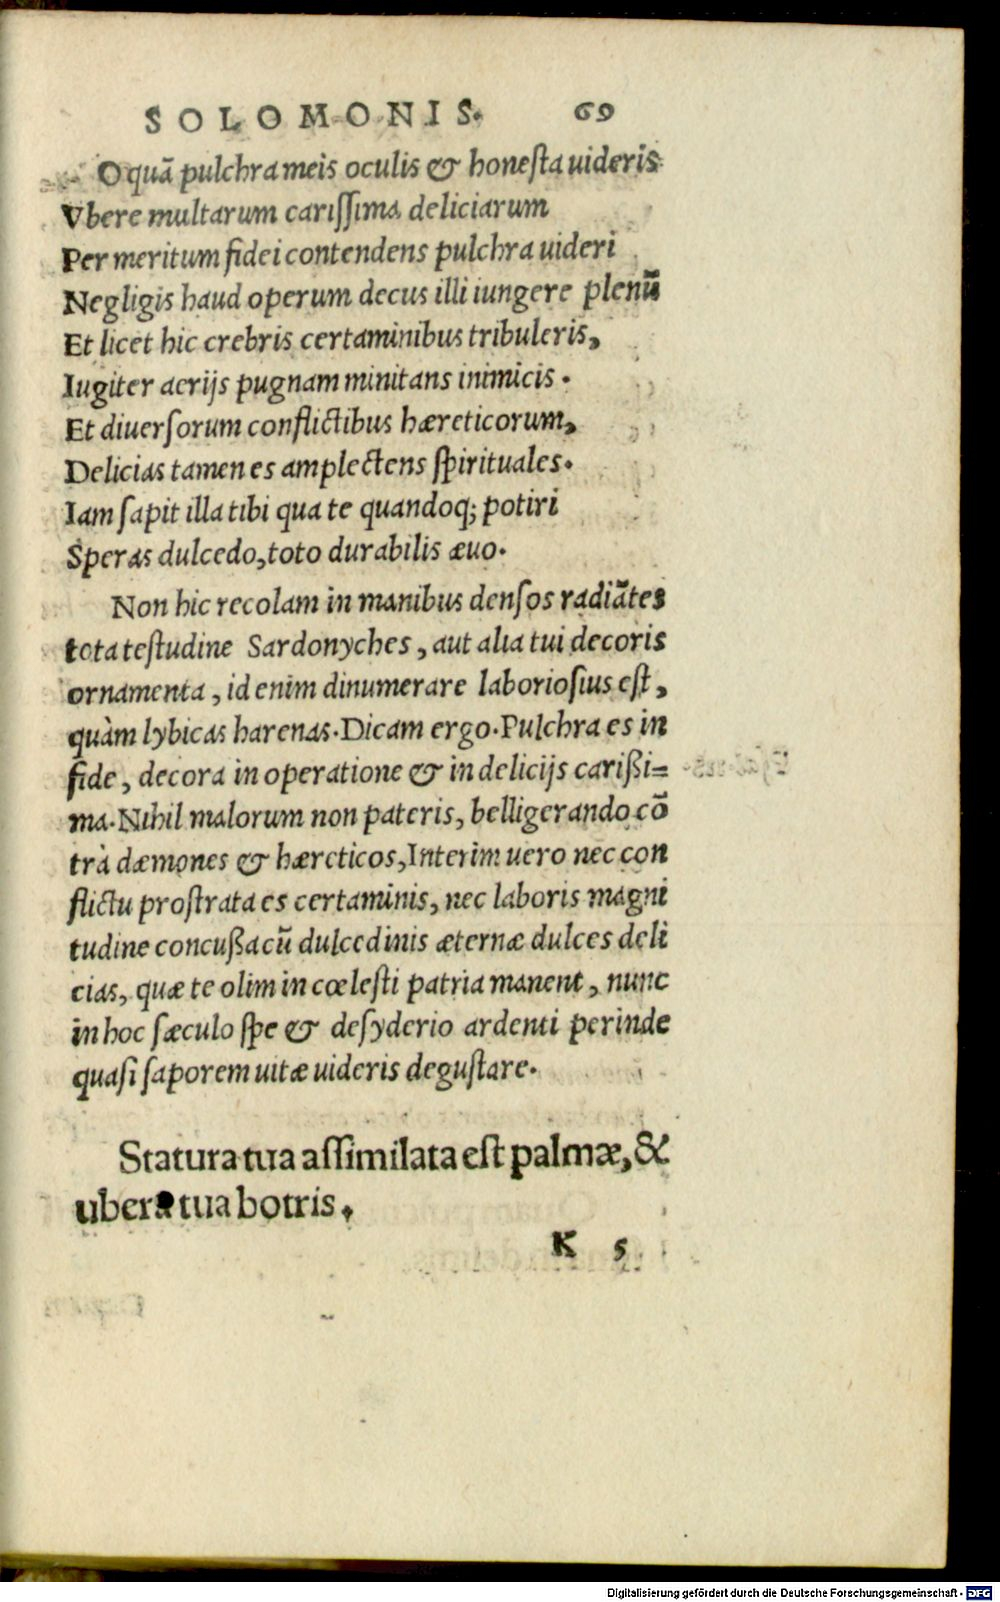 SOLOMONIS. 69
O quā pulchra meis oculis & honesta uideris
Vbere multarum carissima deliciarum
Per meritum fidei contendens pulchra uideri
Negligis haud operum decus illi iungere plenū
Et licet hic crebris certaminibus tribuleris,
Iugiter aerijs pugnam minitans inimicis.
Et diuersorum conflictibus hæreticorum,
Delicias tamen es amplectens spirituales.
Iam sapit illa tibi qua te quandoq; potiri
Speras dulcedo, toto durabilis æuo.
Non hic recolam in manibus densos radiātes
tota testudine Sardonyches, aut alia tui decoris
ornamenta, id enim dinumerare laboriosius est,
quàm lybicas harenas. Dicam ergo. Pulchra es in
fide, decora in operatione & in delicijs carißi=
ma. Nihil malorum non pateris, belligerando cō
trà dæmones & hæreticos, Interim uero nec con
flictu prostrata es certaminis, nec laboris magni
tudine concußa cū dulcedinis æternæ dulces deli
cias, quæ te olim in cœlesti patria manent, nunc
in hoc sæculo spe & desyderio ardenti perinde
quasi saporem uitæ uideris degustare.
Statura tua assimilata est palmæ, &
ubera tua botris.
K 5
Digitalisierung gefördert durch die Deutsche Forschungsgemeinschaft - DFG